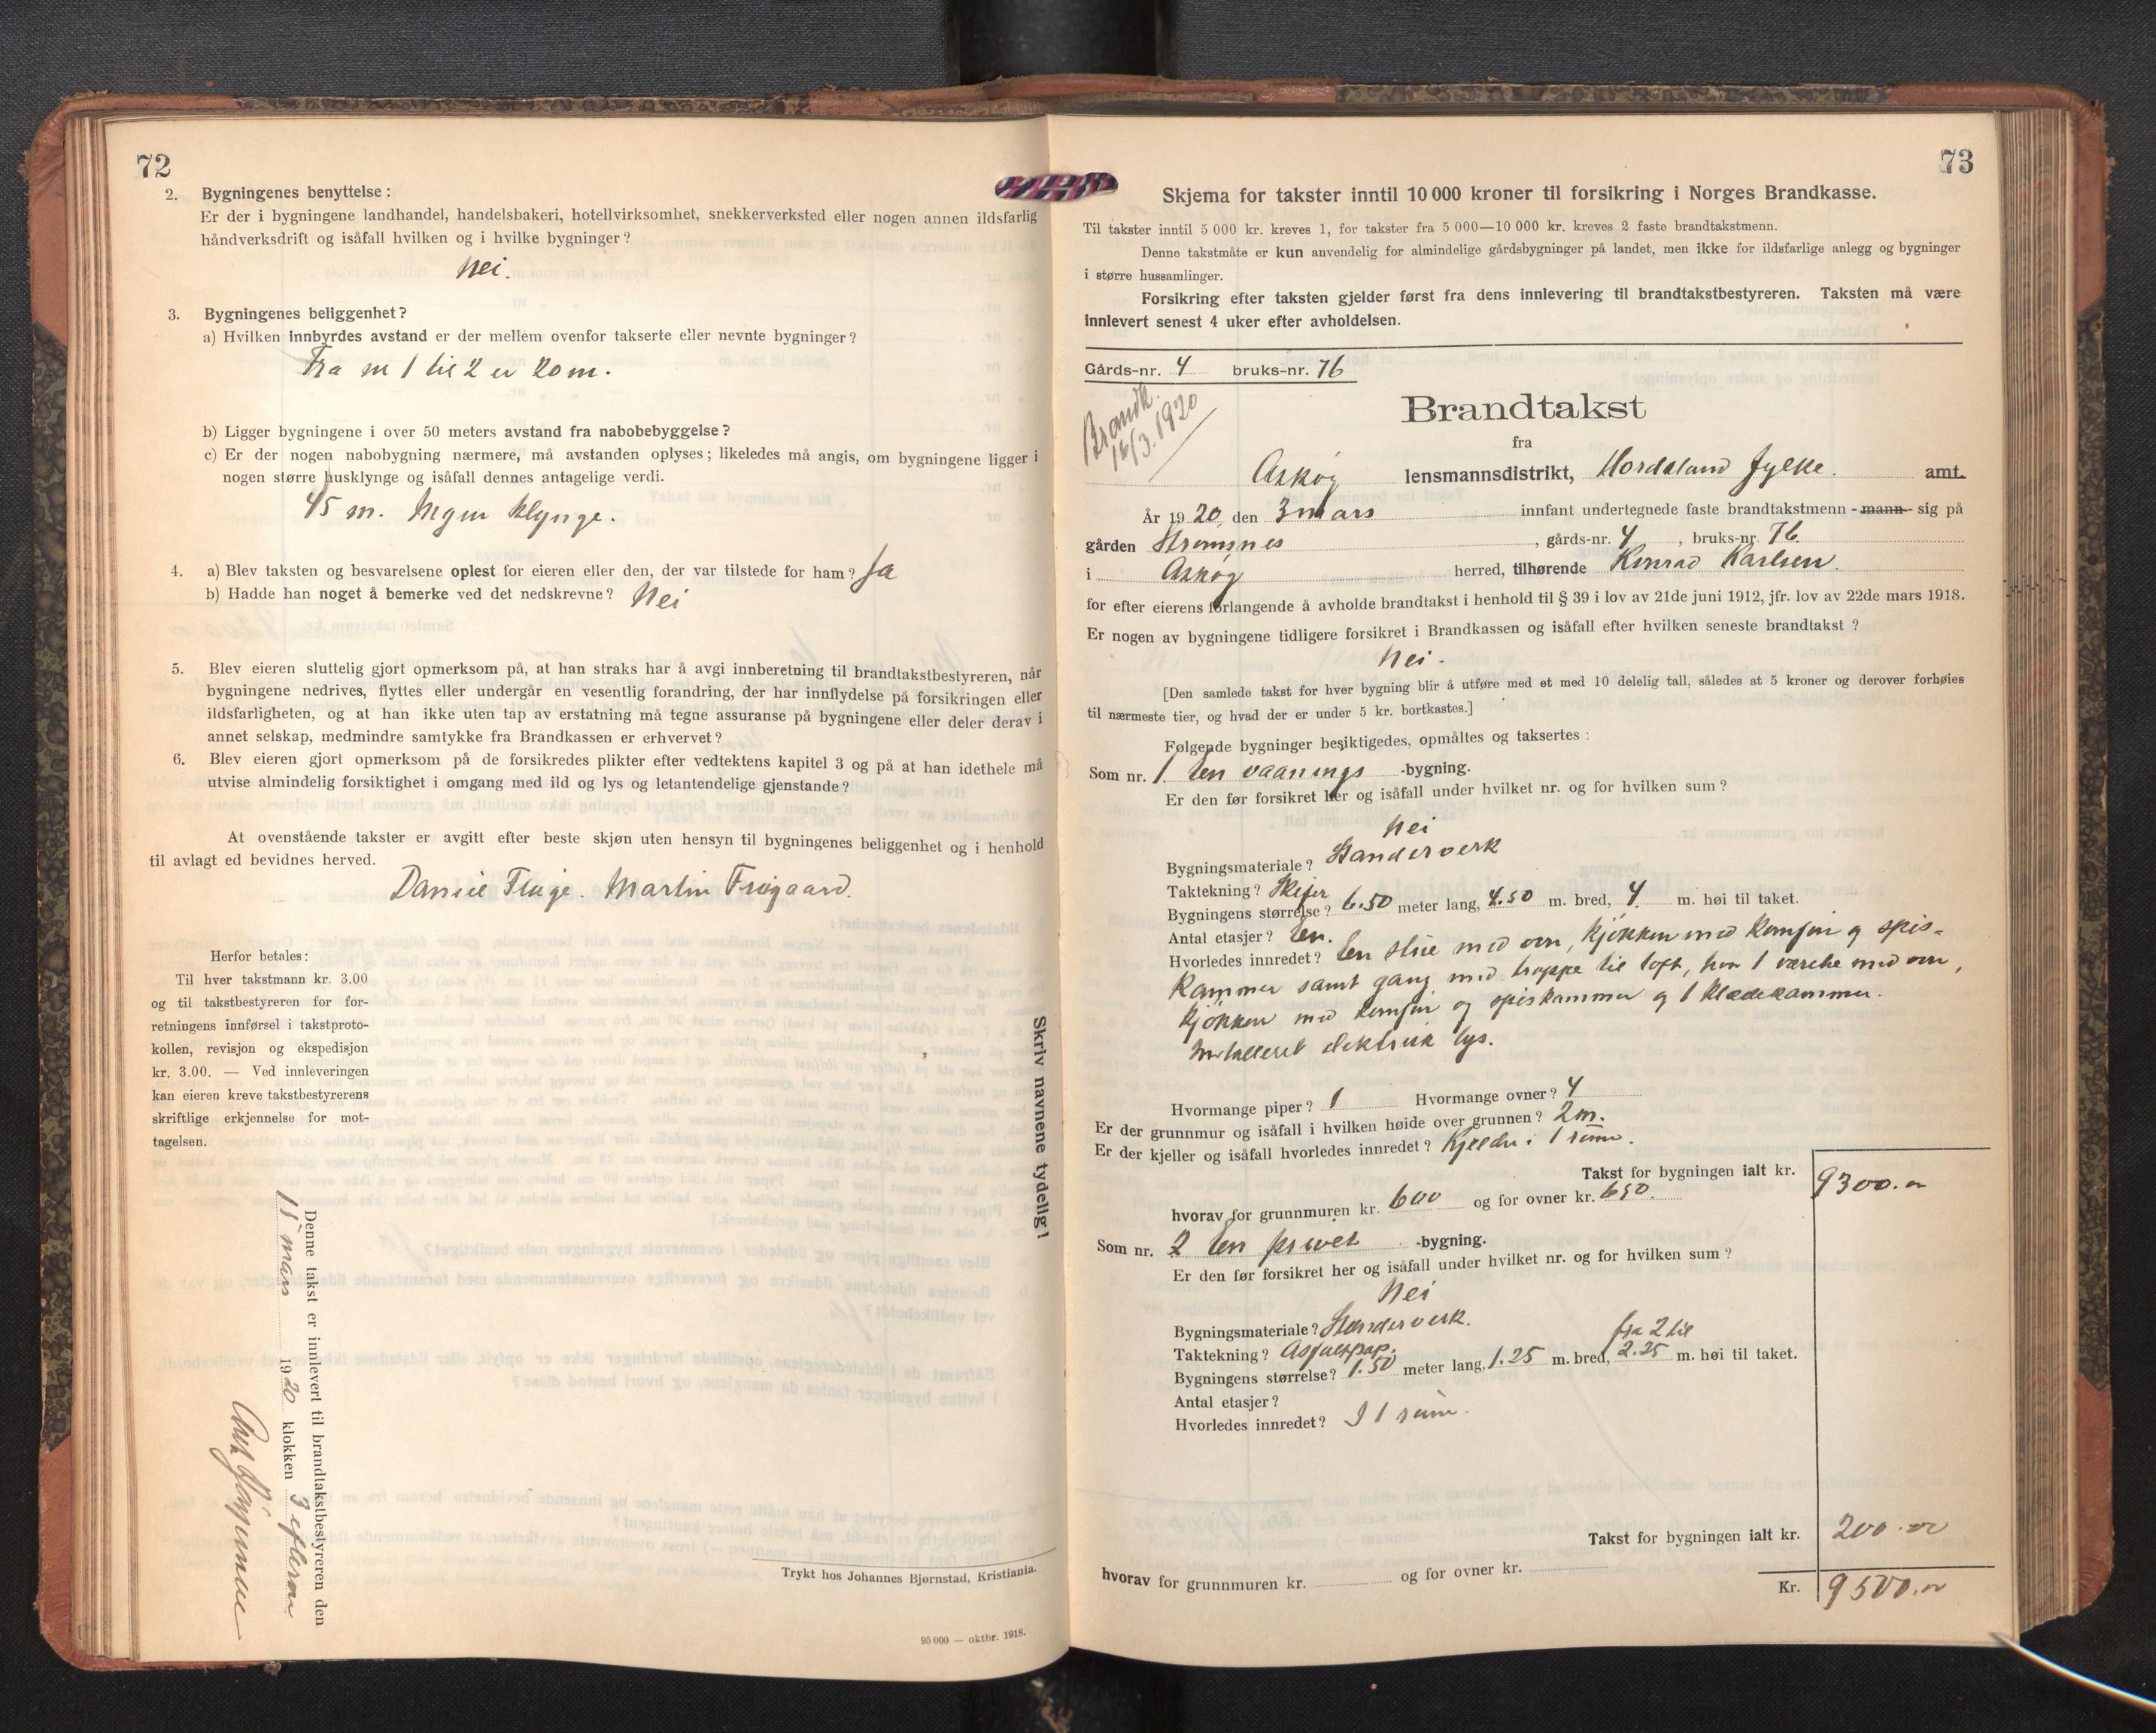 72
2. Bygningenes benyttelse:
Er der i bygningene landhandel, handelsbakeri, hotellvirksomhet, snekkerverksted eller nogen annen ildsfarlig
håndverksdrift og isåfall hvilken og i hvilke bygninger?
Nei.
3. Bygningenes beliggenhet?
a) Hvilken innbyrdes avstand er der mellem ovenfor takserte eller nevnte bygninger?
Fra nr 1 til 2 er 20 m.
b) Ligger bygningene i over 50 meters avstand fra nabobebyggelse?
c) Er der nogen nabobygning nærmere, må avstanden oplyses; likeledes må angis, om bygningene ligger i
nogen større husklynge og isåfall dennes antagelige verdi.
45 m. Ingen klynge.
4. a) Blev taksten og besvarelsene oplest for eieren eller den, der var tilstede for ham? Ja
b) Hadde han noget å bemerke ved det nedskrevne? Nei
5. Blev eieren sluttelig gjort opmerksom på, at han straks har å avgi innberetning til brandtakstbestyreren, når
bygningene nedrives, flyttes eller undergår en vesentlig forandring, der har innflydelse på forsikringen eller
ildsfarligheten, og at han ikke uten tap av erstatning må tegne assuranse på bygningene eller deler derav i
annet selskap, medmindre samtykke fra Brandkassen er erhvervet?
6. Blev eieren gjort opmerksom på de forsikredes plikter efter vedtektens kapitel 3 og på at han idethele må
utvise almindelig forsiktighet i omgang med ild og lys og letantendelige gjenstande?
At ovenstående takster er avgitt efter beste skjøn uten hensyn til bygningenes beliggenhet og i henhold
til avlagt ed bevidnes herved.
Daniel Fluge. Martin Frøgaard.
Herfor betales:
Til hver takstmann kr. 3.00
og til takstbestyreren for for-
retningens innførsel i takstproto-
kollen, revisjon og ekspedisjon
kr. 3.00. — Ved innleveringen
kan eieren kreve takstbestyrerens
skriftlige erkjennelse for mot-
tagelsen.
Skriv navnene tydelig!
Denne takst er innlevert til brandtakstbestyreren den
15 mars 1920 klokken 3 efterm
Trykt hos Johannes Bjørnstad, Kristiania.
95 000 — oktbr. 1918.
73
Skjema for takster inntil 10 000 kroner til forsikring i Norges Brandkasse.
Til takster inntil 5 000 kr. kreves 1, for takster fra 5 000—10 000 kr. kreves 2 faste brandtakstmenn.
Denne takstmåte er kun anvendelig for almindelige gårdsbygninger på landet, men ikke for ildsfarlige anlegg og bygninger
i større hussamlinger.
Forsikring efter taksten gjelder først fra dens innlevering til brandtakstbestyreren. Taksten må være
innlevert senest 4 uker efter avholdelsen.
Gårds-nr. 4 bruks-nr. 76
Brandk.
16/3.1920
Brandtakst
fra
Askøy lensmannsdistrikt, Hordaland fylke. amt.
År 1920, den 3 mars innfant undertegnede faste brandtakstmenn - mann - sig på
gården Strømsnes, gårds-nr. 4, bruks-nr. 76
i Askøy herred, tilhørende Konrad Karlsen.
for efter eierens forlangende å avholde brandtakst i henhold til § 39 i lov av 21de juni 1912, jfr. lov av 22de mars 1918.
Er nogen av bygningene tidligere forsikret i Brandkassen og isåfall efter hvilken seneste brandtakst?
Nei.
[Den samlede takst for hver bygning blir å utføre med et med 10 delelig tall, således at 5 kroner og derover forhøies
til nærmeste tier, og hvad der er under 5 kr. bortkastes.]
Følgende bygninger besiktigedes, opmåltes og taksertes:
Som nr. 1. En vaanings -bygning.
Er den før forsikret her og isåfall under hvilket nr. og for hvilken sum?
Nei
Bygningsmateriale? Standerverk
Taktekning? Skifer
Bygningens størrelse? 6.50 meter lang, 4.50 m. bred, 4 m. høi til taket.
Antal etasjer? En.
Hvorledes innredet? En stue med ovn, kjøkken med komfur og spis-
kammer samt gang med trappe til loft, hvor 1 værelse med ovn,
kjøkken med komfur og spiskammer og 1 klædekammer.
Installeret elektrisk lys.
Hvormange piper? 1 Hvormange ovner? 4
Er der grunnmur og isåfall i hvilken høide over grunnen? 2 m.
Er der kjeller og isåfall hvorledes innredet? Kjelder i 1 rum.
Takst for bygningen ialt kr. 9300.00
hvorav for grunnmuren kr. 600 og for ovner kr. 650.
Som nr. 2 En privet -bygning.
Er den før forsikret her og isåfall under hvilket nr. og for hvilken sum?
Nei
Bygningsmateriale? Standerverk.
Taktekning? Asfaltpap.
Bygningens størrelse? 1.50 meter lang, 1.25 m. bred, fra 2 til 2.25 m. høi til taket.
Antal etasjer?
Hvorledes innredet? I 1 rum.
Takst for bygningen ialt kr. 200.00
hvorav for grunnmuren kr. og for ovner kr.
Kr. 9500.00